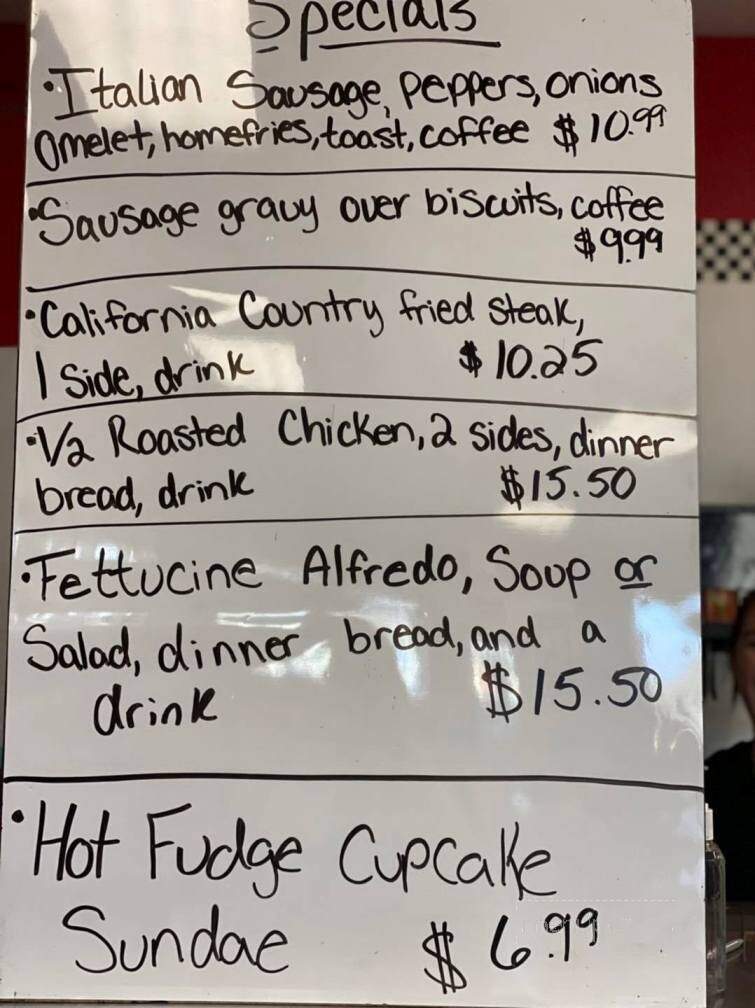 Specials
•Italian Sausage, peppers, onions
omelet, homefries, toast, coffee $10.99
•Sausage gravy over biscuits, coffee
$9.99
•California Country fried steak,
1 side, drink $10.25
•1/2 Roasted Chicken, 2 sides, dinner
bread, drink $15.50
•Fettucine Alfredo, Soup or
Salad, dinner bread, and a
drink $15.50
•Hot Fudge Cupcake
Sundae $6.99